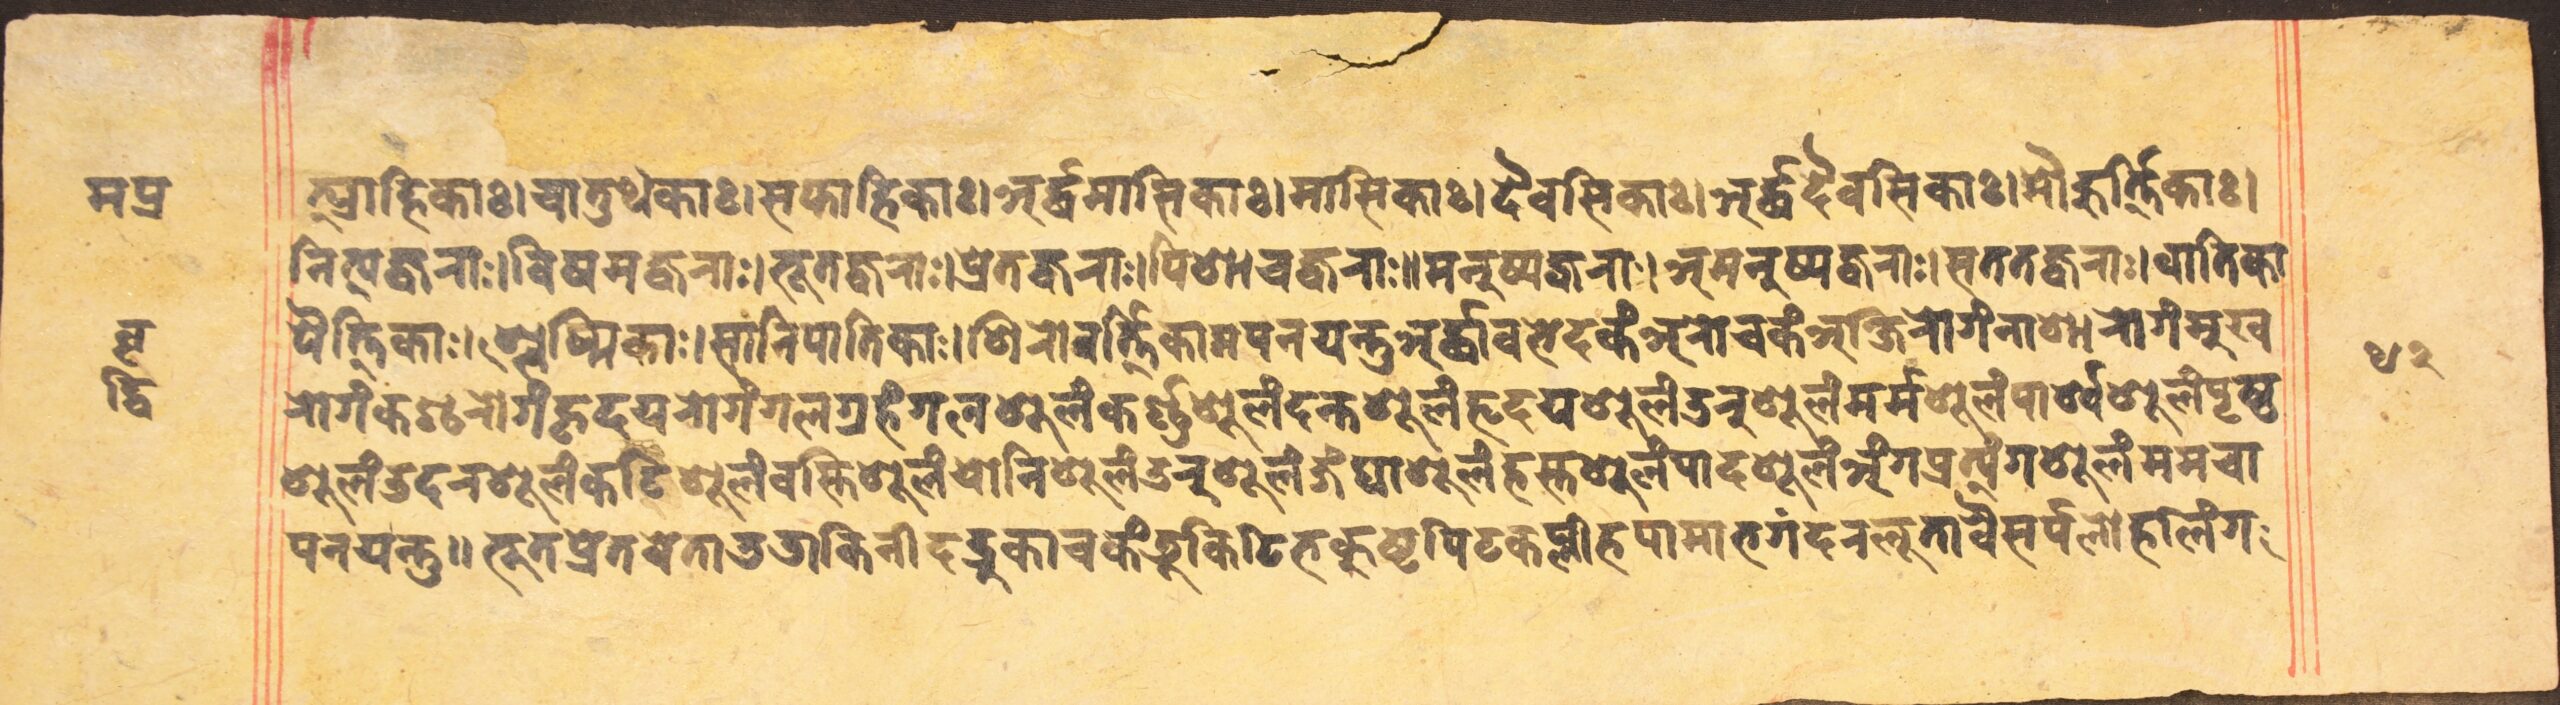 मप्र
त्र्याहिकाः।चातुर्थकाः।सप्ताहिकाः।अर्द्धमासिकाः।मासिकाः।दैवसिकाः।अर्द्धदैवसिकाः।मौहुर्त्तिकाः।
नित्यज्वराः।विषमज्वराः।भूतज्वराः।प्रेतज्वराः।पिशाचज्वराः॥मनुष्यज्वराः।अमनुष्यज्वराः।सततज्वराः।वातिका
पैत्तिकाः।श्लेष्मिकाः।सानिपातिकाः।शिरोवर्त्तिकामपनयन्तुअर्द्धावभेदकंअरोचकंअक्षिरोगंनाशारोगंमुख
रोगंकण्ठरोगंहृदयरोगंगलग्रहंगलशूलंकर्ण्णशूलंदन्तशूलंहृदयशूलंउरुशूलंमर्मशूलंपार्श्वशूलंपृष्ठ
शूलंउदरशूलंकटिशूलंवस्तिशूलंयोनिशूलंउरुशूलंजंघाशूलंहस्तशूलंपादशूलंअंगप्रत्यंगशूलंममचा
पनयन्तु॥भूतप्रेतवेताडडाकिनीदद्रुकाचकंडूकिटिभकुष्ठपिटकप्लीहपामाभगंदरलूतावैसर्पलोहलिंग
द्धि
५२